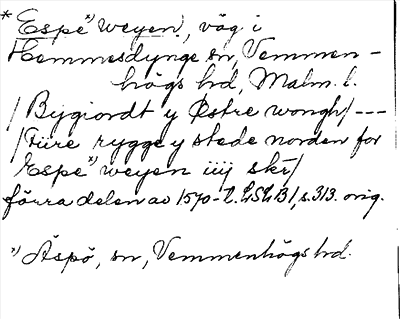 * Espe *) weyen, väg i
Hemmesdynge sn, Vemmen-
högs hd, Malm. l.
/ Bygiordt y Østre wongh / ---
/ Fiire rygge y stede norden for
Espe *) weyen iiij ski /
förra delen av 1570-t. LSLB 1, s. 313. orig.
*) Äspö, sn, Vemmenhögs hd.